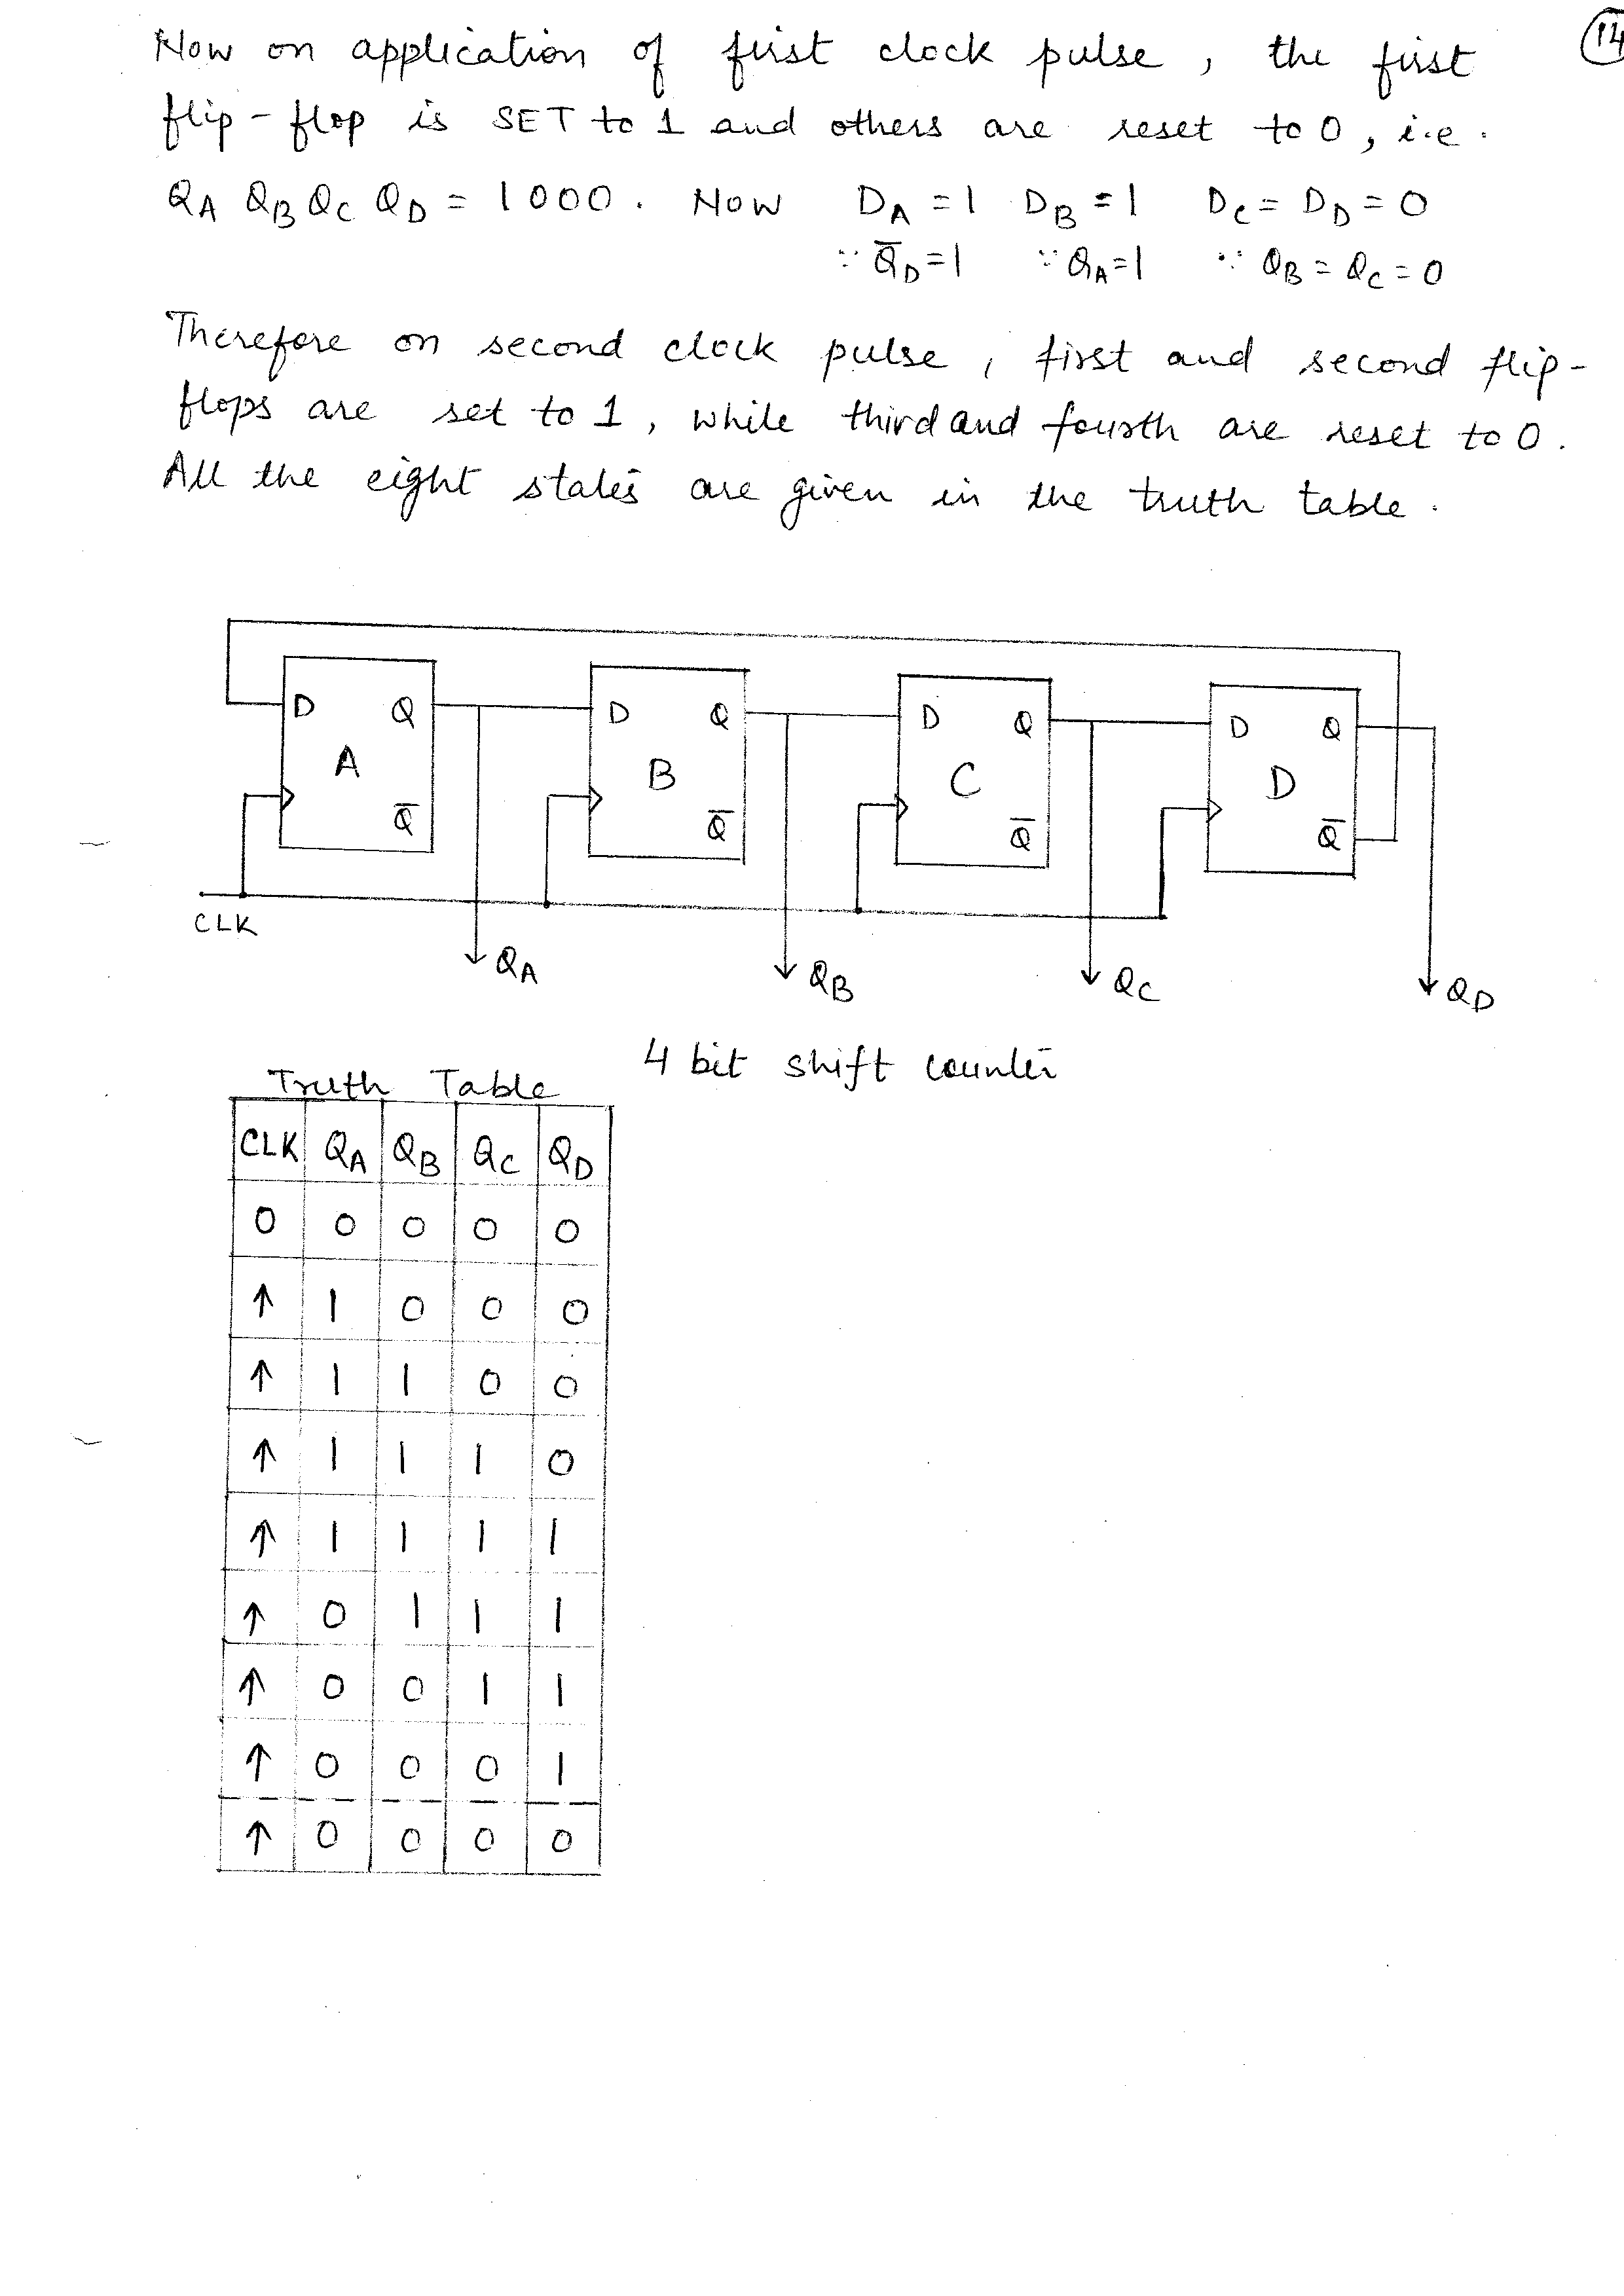 Now on application of first clock pulse, the first
flip-flop is SET to 1 and others are reset to 0, i.e.
QA QB QC QD = 1000. Now DA = 1 DB = 1 DC = DD = 0
∵ Q̅D = 1 ∵ QA = 1 ∵ QB = QC = 0
Therefore on second clock pulse, first and second flip-
flops are set to 1, while third and fourth are reset to 0.
All the eight states are given in the truth table.
D Q D Q D Q D Q
A B C D
Q̅ Q̅ Q̅ Q̅
CLK
QA QB QC QD
4 bit shift counter
Truth Table
CLK QA QB QC QD
0 0 0 0 0
↑ 1 0 0 0
↑ 1 1 0 0
↑ 1 1 1 0
↑ 1 1 1 1
↑ 0 1 1 1
↑ 0 0 1 1
↑ 0 0 0 1
↑ 0 0 0 0